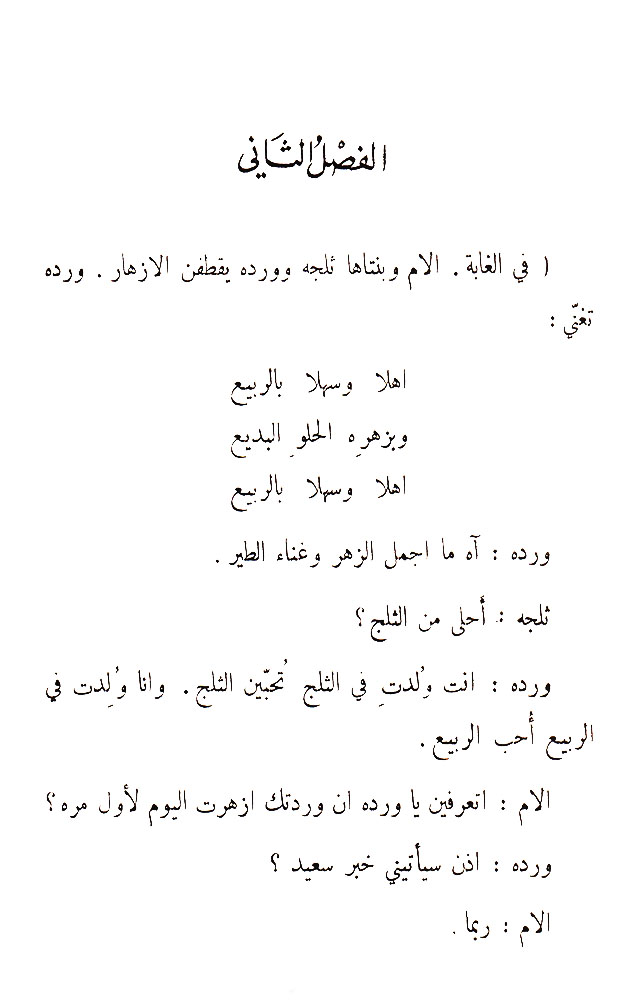 الفصْلُ الثَاني
( في الغابة . الام وبنتاها ثلجه وورده يقطفن الازهار . ورده
تغنّي :
اهلا وسهلا بالربيع
وبزهرِه الحلوِ البديع
اهلا وسهلا بالربيع
ورده : آه ما اجمل الزهر وغناء الطير .
ثلجه : أحلى من الثلج ؟
ورده : انت وُلدتِ في الثلج تُحبّين الثلج . وانا وُلِدت في
الربيع أُحب الربيع .
الام : اتعرفين يا ورده ان وردتك ازهرت اليوم لأول مره ؟
ورده : اذن سيأتيني خبر سعيد ؟
الام : ربما .